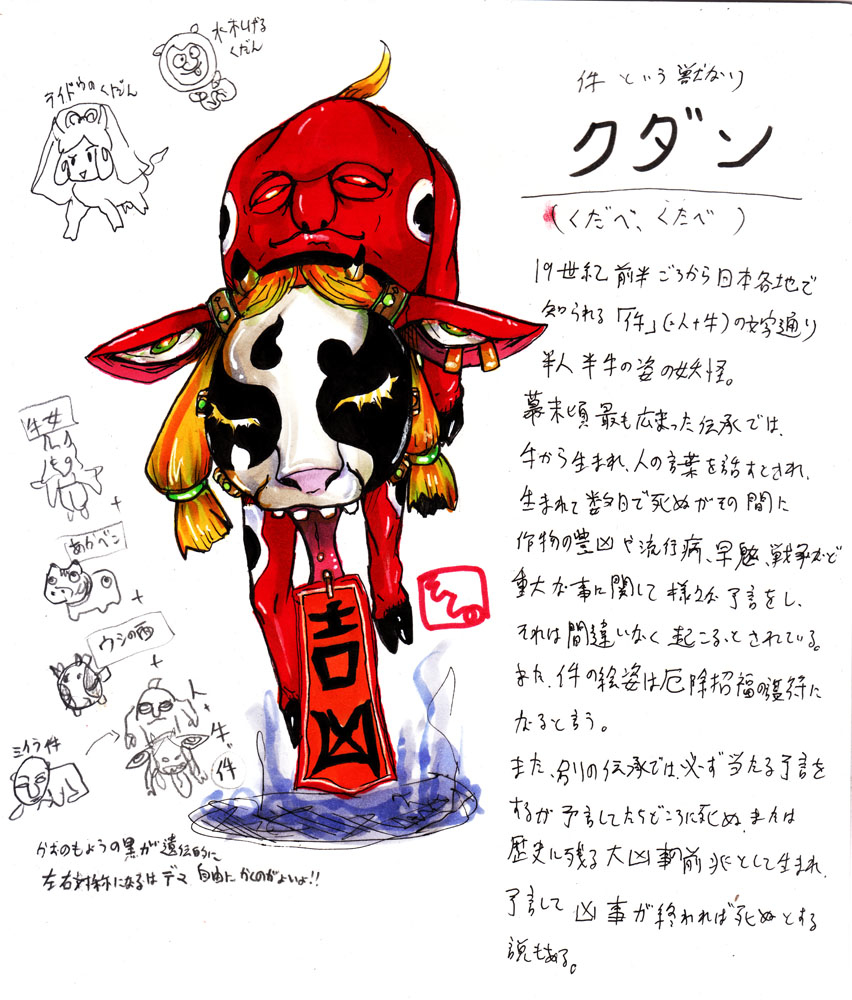 水木しげる
くだん
ライドウの くだん
件 という獣なり
クダン
(くだべ、くたべ )
19世紀前半ごろから日本各地で
知られる「件」(:人+牛)の文字通り
半人半牛の姿の妖怪。
幕末頃最も広まった伝承では、
牛から生まれ、人の言葉を話すとされ、
生まれて数日で死ぬがその間に
作物の豊凶や流行病、旱魃、戦争など
重大な事に関して様々な予言をし、
それは間違いなく起こるとされている。
また、件の絵姿は厄除招福の護符に
なると言う。
また、別の伝承では、必ず当たる予言を
するが予言したちどころに死ぬ、または
歴史に残る大凶事前兆として生まれ、
予言して凶事が終われば死ぬとする
説もある。
牛女
+
あかべこ
+
ウシの面
+
人
+
牛
件
ミイラ件
吉凶
かおのもようの黒が遺伝的に
左右対称になるはデマ 自由にかくのがよいよ!!